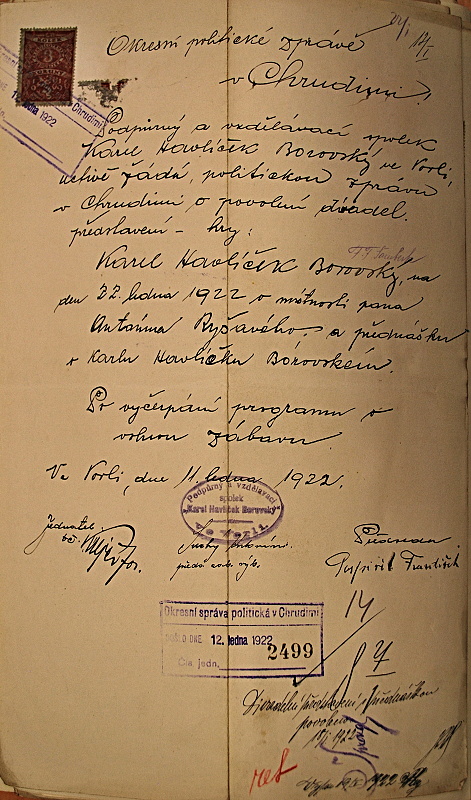 Okresní politické zprávě
v Chrudimi!
Podpůrný a vzdělávací spolek
Karel Havlíček Borovský ve Vorli,
uctivě žádá, politickou zprávu
v Chrudimi o povolení divadel.
představení – hry:
Karel Havlíček Borovský, na
den 22. ledna 1922 v místnosti pana
Antonína Ryšavého – a přednášku
o Karlu Havlíčku Borovském.
Po vyčerpání programu o
volnou zábavu
Ve Vorli, dne 11. ledna 1922.
Podpůrný a vzdělávací
spolek
Karel Havlíček Borovský
Jednatel
Předseda
Pospíšil František
Okresní správa politická v Chrudimi
DOŠLO DNE 12. ledna 1922
2499
Čís. jedn.
14
Divadelní představení i přednáškou
povoleno